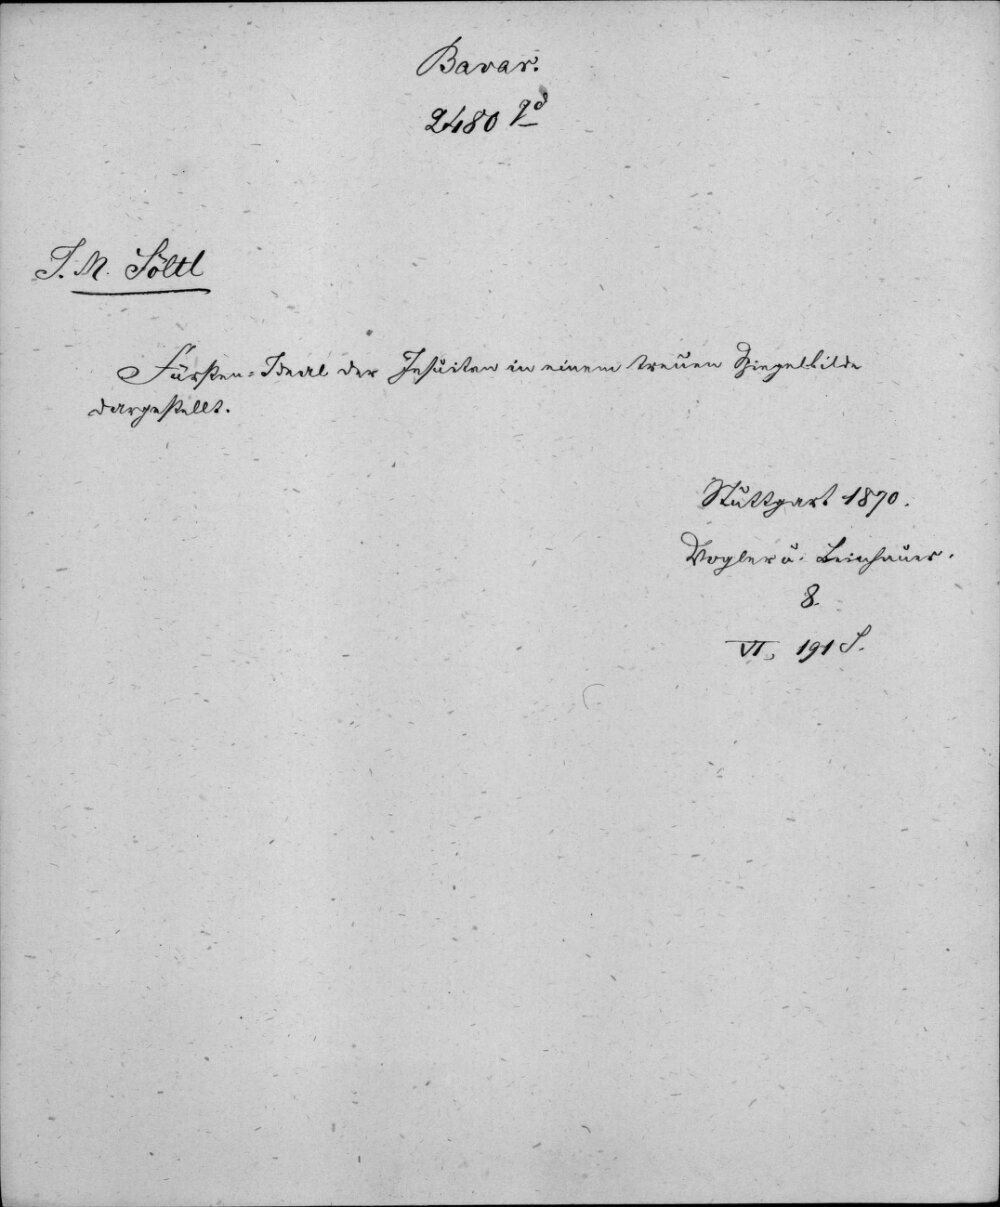 Bavar.
2480 qd
J. M. Söltl
Fürsten-Ideal der Jesuiten in einem treuen Spiegelbilde
dargestellt.
Stuttgart 1870.
Vogler u. Beinhauer.
8.
VI, 191 S.